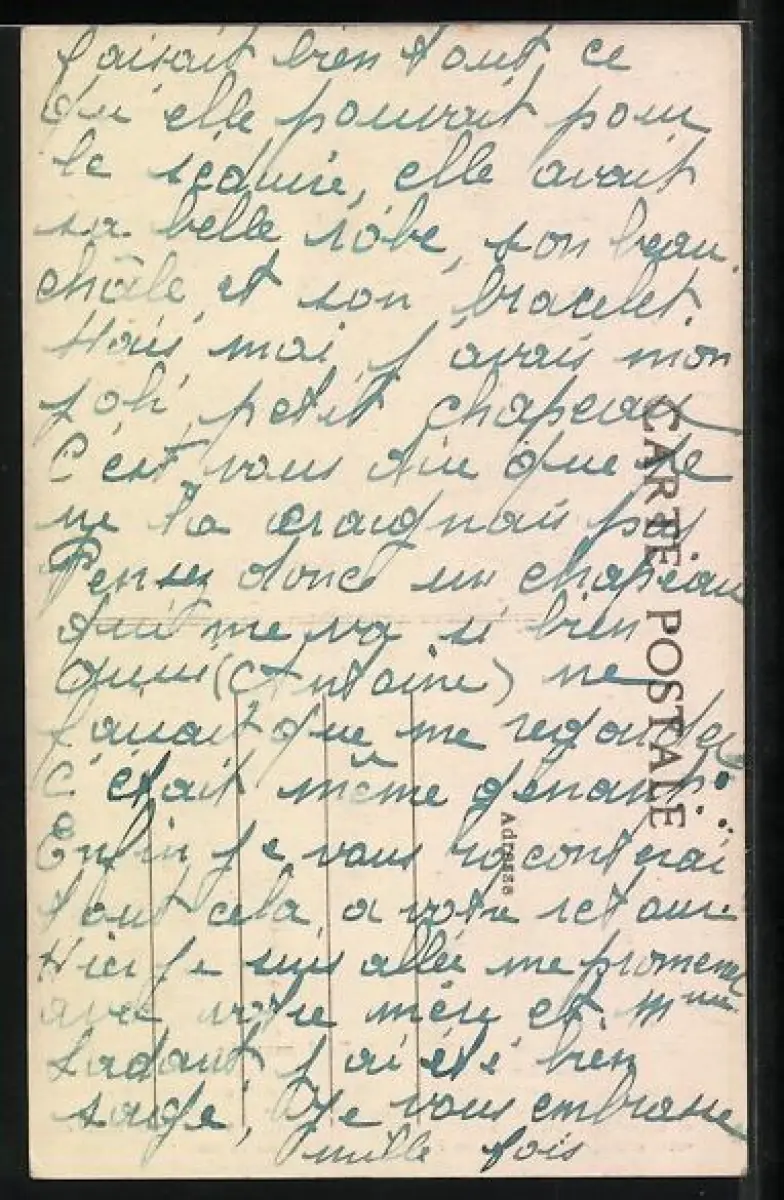 faisait bien tout ce
qu'elle pouvait pour
le séduire, elle avait
sa belle robe, son beau
châle et son bracelet.
Mais moi j'avais mon
joli petit chapeau
C'est vous dire que je
ne la craignais pas
Pensez donc un chapeau
qui me va si bien
(Antoine) ne
faisait que me regarder
C'était même gênant...
Enfin je vous raconterai
tout cela a votre retour.
Hier je suis allée me promener
avec votre mère et Mme
j'ai été bien
sage, Je vous embrasse
mille fois
CARTE POSTALE
Adresse